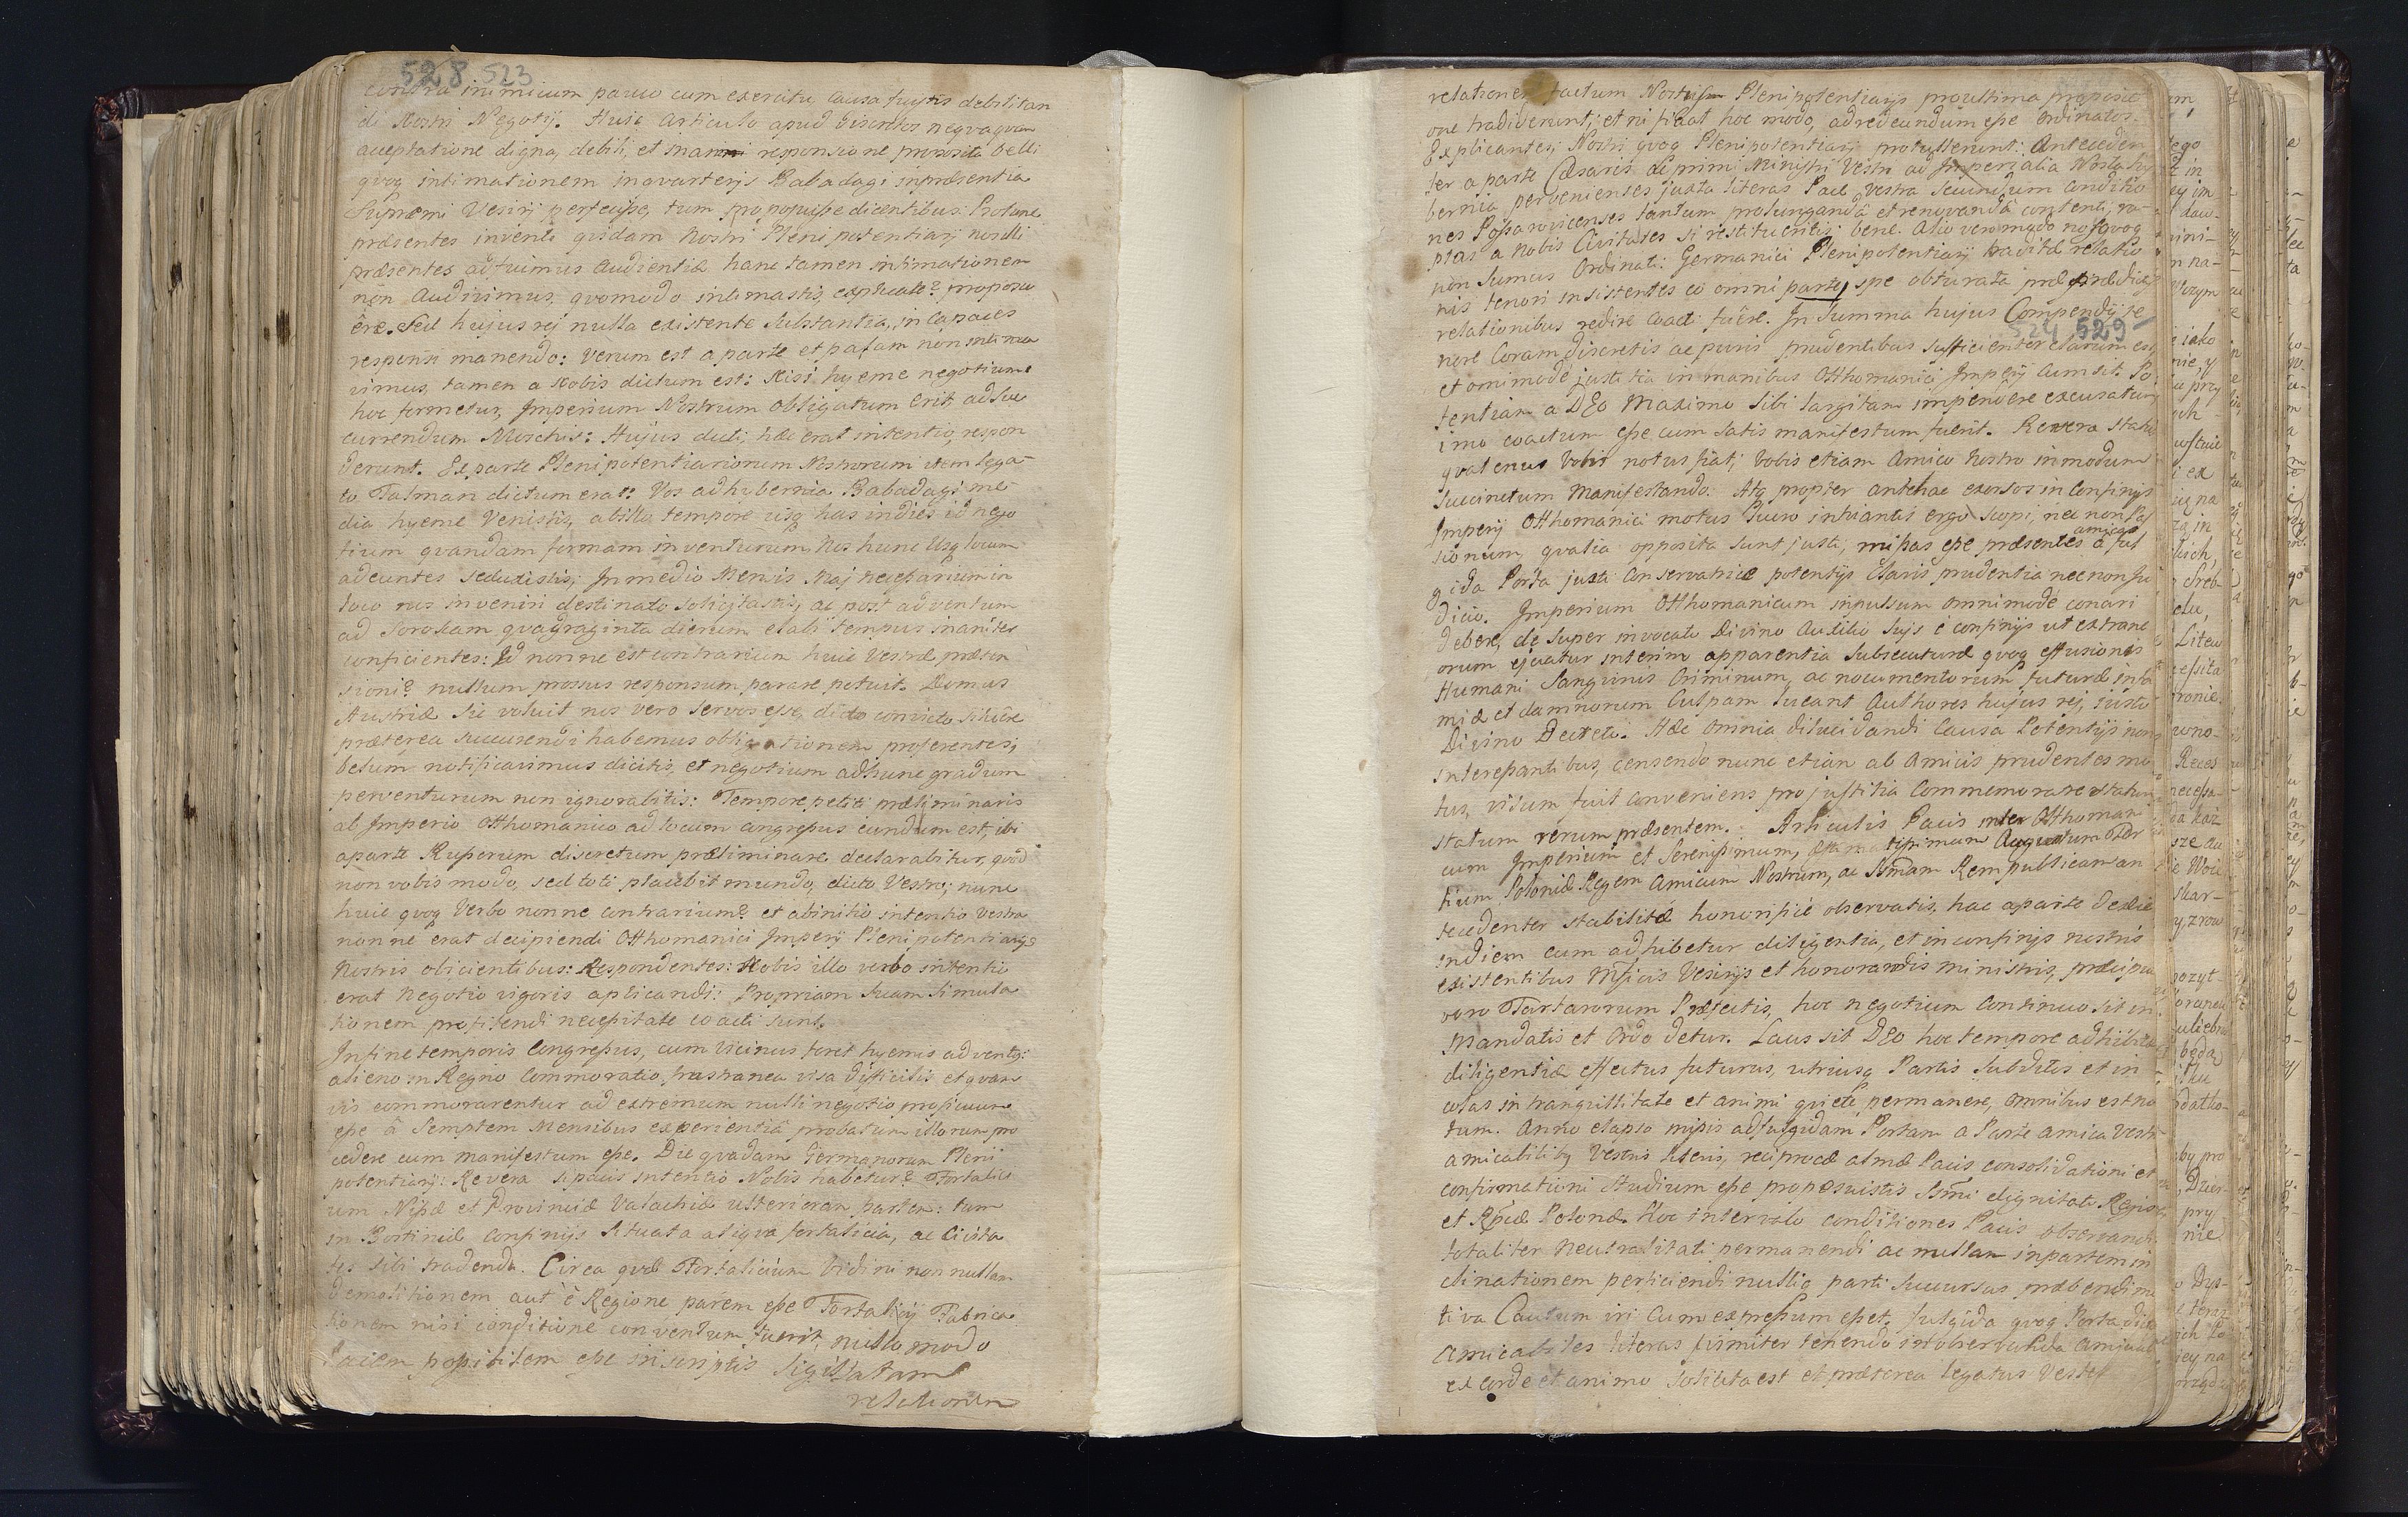 528 523
contra inimicum pauco cum exercitu, causa fuistis debilitan
di Nostri Negotij. Huic articulo apud discretos neqvaqvam
acceptatione digna, debili, et inani responsione proposita belli
qvoq intimationem in qvarterijs Babadagi in præsentia
Supremi Vesirij perfecisse, tum proposuisse dicentibus: Pro tunc
præsentes inventi qvidam Nostri Plenipotentiarij nos illi
præsentes adfuimus Audientiæ hanc tamen intimationem
non Audivimus, qvomodo intimastis, explicate? proposu
êre. Sed hujus rej nulla existente substantia, incapaces
responsi manendo: Verum est aparte et palam non intima
vimus, tamen a Nobis dictum est: Nisi hyeme negotium
hoc formetur, Imperium Nostrum obligatum erit, ad suc
currendum Moschis: Hujus dicti, hæc erat intentio, respon
derunt. Ex parte Plenipotentiariorum Nostrorum item Lega-
to Talman dictum erat: Vos ad hybernia Babadagi me
dia hyeme Venistis, ab illo tempore usq has indies id nego
tium qvandam formam inventurum, Nos hunc Usq locum
adeuntes seduxistis, In medio Mensis Maj necessarium in
loco nos inveniri destinato solicitastis, ac post adventum
ad Sorokam qvadraginta dierum elabi tempus inaniter
conficientes: Id nonne est contrarium huic Vestræ præten
sioni? nullum prorsus responsum parare potuit. Domus
Austriæ sic voluit nos vero servos esse, dicto convicto siluêre
præterea succurendi habemus obligationem proferentes;
bellum notificavimus dicitis, et negotium ad hunc gradum
perventurum non ignorabitis: Tempore petiti præliminaris
ab Imperio Otthomanico ad locum congressus eundum est, ibi
aparte Russorum discretum præliminare declarabitur, qvod
non vobis modo, sed toti placebit mundo, dicto Vestro; nunc
huic qvoq Verbo nonne contrarium? et ab initio intentio Vestra
nonne erat decipiendi Otthomanici Imperij Plenipotentiarijs
Nostris obicientibus: Respondentes: Nobis illo verbo intentio
erat Negotio vigoris aplicandi: Propriam suam simula
tionem profitendi necessitate coacti sunt.
In fine temporis Congressus, cum vicinus foret hyemis adventus
alieno in Regno Commoratio, trastranea visa difficilis et qvam
vis commorarentur ad extremum nulli negotio proficuum
esse â Semptem Mensibus experientiâ probatum illorum pro
cedere cum manifestum esse. Die qvadam Germanorum Pleni
potentiarij: Revera si pacis intentio Nobis habetur? Fortalici
um Nissæ et Provinciæ Valachiæ ulteriorem partem: tum
in Bostiniæ Confinijs situata aliqva fortalicia, ac Civita
tes sibi tradenda. Circa qvod Fortalicium Vidini non nullam
demolitionem aut è Regione parem esse Fortalicij Fabrica
tionem nisi conditione conventum fuerit, nullo modo
Pacem possibilem esse in scriptis sigillatam
relationem
relationem factum Nostrum Plenipotentiarijs pro ultima proposi
one tradiderunt; et ni fiat hoc modo, ad redeundum esse Ordinatos
Explicantes; Nostri qvoq Plenipotentiarij protulterunt: Anteceden
ter aparte Cæsaris, de primi Ministri Vestri ad Imperialia Nostra hy
bernia pervenientes juxta literas Pace Vestra secundum conditio
nes Possarovicenses tantum prolungandâ et renovandâ contenti, ra-
ptas a nobis Civitates si restitueritis; bene. Alio vero modo nos qvoq
non sumus Ordinati: Germanici Plenipotentiarij traditæ relatio
nis tenori insistentes eo omni parte spe obturata præ prædictis
relationibus redire coacti fuêre. In summa hujus Compendij te
524 529
nore Coram discretis ac puris prudentibus sufficienter clarum est
et omnimode justitia in manibus Otthomanici Imperij cum sit. Po
tentiam a DEo Maximo sibi largitam impendere excusatum
imo coactum esse cum satis manifestum fuerit. Revera status
qvatenus Vobis notus fiat; Vobis etiam Amico Nostro in modum
succinctum Manifestando. Atq propter antehac exorsos in Confinijs
Imperij Otthomanici motus Pacis intrantis ergo scopi, nec non Pas
sionum, qvalia opposita sunt justi, missas esse præsentes amicas a Ful
gida Porta justi Conservatrice potentijs claris prudentia nec non ju
dicio. Imperium Otthomanicum inpulsum omnimode conari
debere, de super invocato Divino Auxilio sujs è confinijs ut extrane
orum ejiciatur interim apparentia subsecuturæ qvoq effusionis
Humani Sanguinis Criminum, ac nocumentorum futuræ infa
miæ et damnorum Culpam Lueant Authores hujus rej, justo
Divino Decreto. Hæc omnia dilucidandi Causa Potentijs non
interessantibus, censendo nunc etiam ab Amicis prudentes mo
tus, visum fuit conveniens pro justitia Commemorare statum
statum rerum præsentem. Articulis Pacis inter Otthomani
cum Imperium et Serenissimum, Augustum Ter
tium Poloniæ Regem Amicum Nostrum, ac Ssmam Rempublicam an
tecedenter stabilitæ honorifice observatis, hac aparte de die
in diem cum adhibetur diligentia, et in confinijs nostris
existentibus Vesirijs et honorandis ministris, præcipue
vero Tartarorum Præfectis, hoc negotium continuo sit in
Mandatis et Ordo detur. Laus sit DEo hoc tempore adhibita
diligentiæ effectus futurus, utriusq Partis subditos et in
colas in tranquillitate et animi qviete permanere, omnibus est no
tum. Anno elapso missis ad fulgidam Portam a Parte amica Vestra
amicabilibus Vestris literis, reciprocæ almæ Pacis consolidationi et
confirmationi studium esse proposuistis Ssmi dignitati Regis
et Rpcæ Polonæ. Hoc intervalo conditiones Pacis observandi
totaliter Neutralitati permanendi ac nullam in partem in
clinationem perficiendi nullis parti succursus præbendi mo
tiva Cautum iri cum expressum esset. Fulgida qvoq Porta dictas
amicabiles literas firmiter tenendo in observanda Amicabil
ex corde et animo solicita est et præterea Legatus Vester